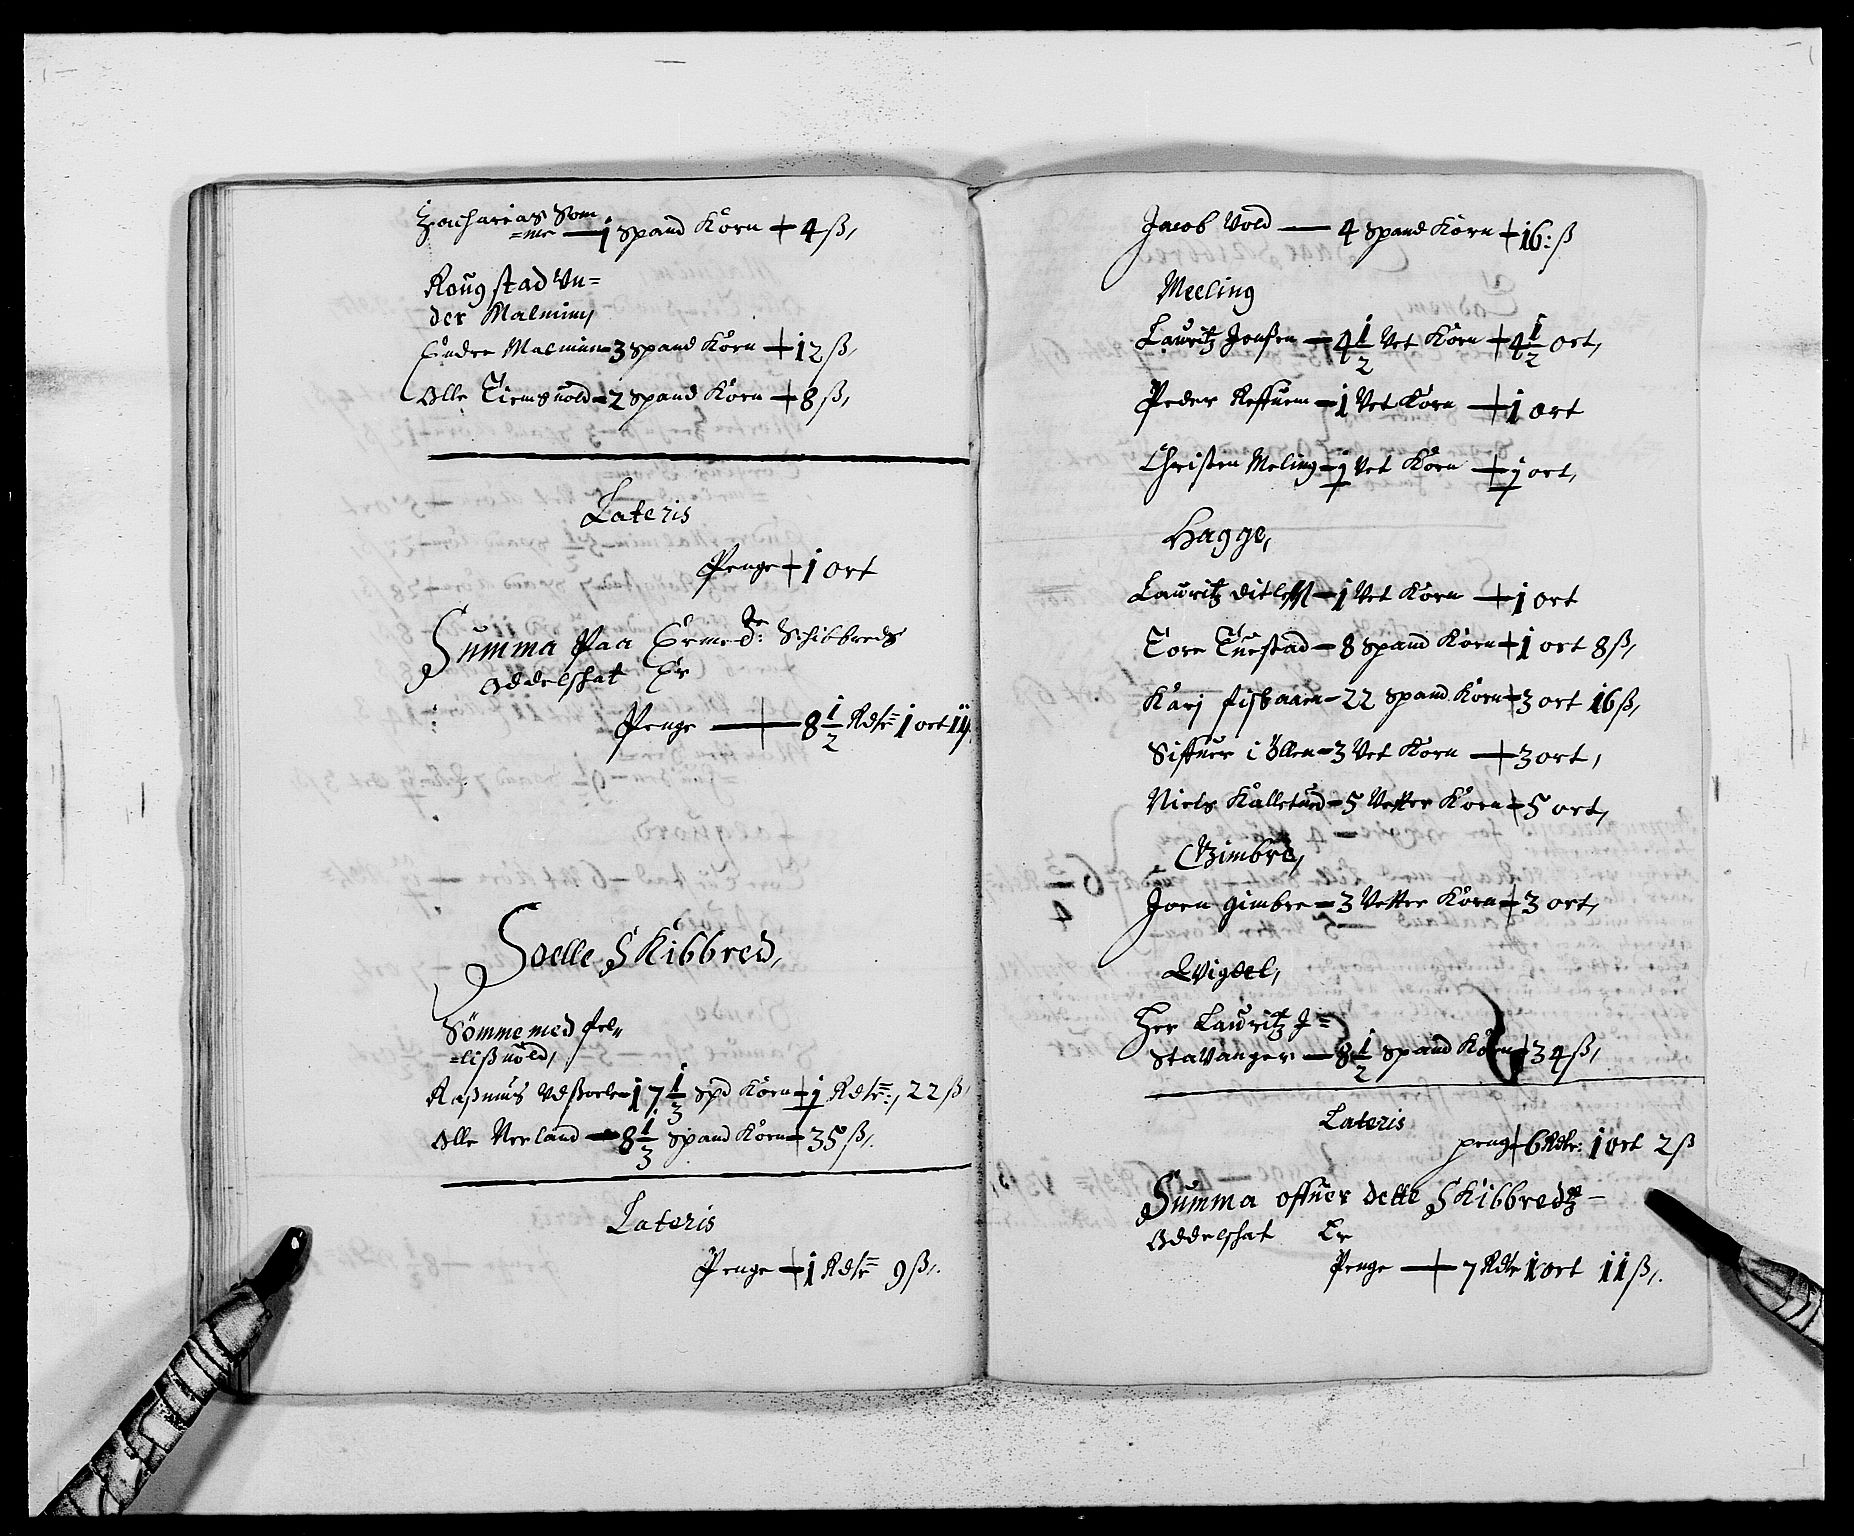 Zacharias Som
=me — 1 Spand Korn + 4 ß,
Rougstad Un=
der Malmim,
Endre Malmim - 3 Spand Korn + 12 ß,
Olle Tiemsuold - 2 Spand Korn + 8 ß,
Lateris
Penge + 1 ort
Summa Paa Ermed:te Schibbreds
Oddelschat Er
Penge — 8 1/2 Rdlr 1 ort
Soelle Skibbred,
Sømme med fel=
=lißuold,
Raßmus Udßoele 17 1/3 Spd Korn + 1 Rdlr, 22 ß
Olle Nerland — 8 1/3 Spand Korn - 35 ß,
Lateris
Penge + 1 Rdlr 9 ß,
Jacob Vold — 4 Spand Korn + 16: ß
Meeling
Lauritz Jenßen — 4 1/2 Vet Korn + 4 1/2 ort,
Peder Reffuem — 1 Vet Korn + 1 ort
Christen Meling - 1/2 Vet Korn + 1/2 ort,
Hagge,
Lauritz Ditleff — 1 Vet Korn + 1 ort
Tore Tuestad - 8 Spand Korn + 1 ort 8 ß,
Karj fisbaaen - 22 Spand Korn + 3 ort 16 ß,
Siffuer i Ollen - 3 Vet Korn + 3 ort,
Niels Kalletued - 5 Vetter Korn + 5 ort,
Gimbre,
Joen Gimbre - 3 Vetter Korn + 3 ort,
Wigdel,
Her Lauritz J=
Stavanger — 8 1/2 Spand Korn + 34 ß,
Lateris
peng + 6 Rdlr: 1 ort 2 ß
Summa offuer dette Skibbredtz —
Oddelschat Er
Penge — 7 Rdlr 1 ort 11 ß,